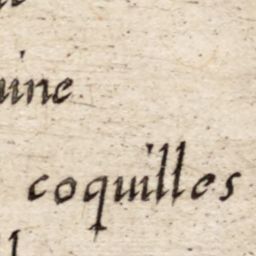 uine
coquilles